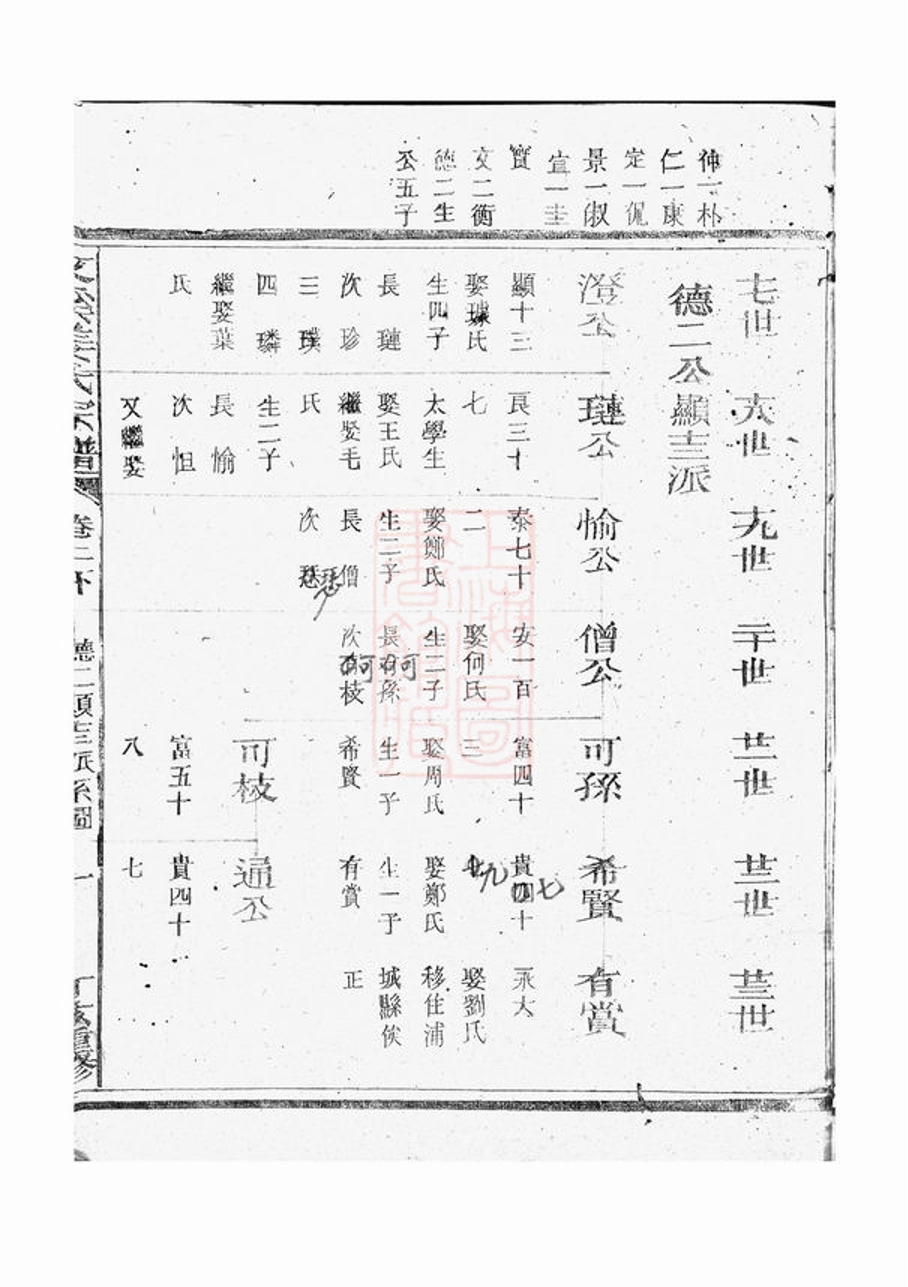 伸一朴
仁一康
定一侃
景一俶
宣一圭
寶
文二衡
德二生
公五子
七世
大世
九世
二十世
廿一世
廿二世
廿三世
德二公顯十三派
澄公
顯十三
娶璩氏
生四子
長 璉
次 珍
三 璞
四 璘
繼娶葉
氏
璉公
良三十
七
太學生
娶王氏
繼娶毛
氏
生二子
長 愉
次 怛
又繼娶
愉公
泰七十
二
娶鄭氏
生二子
長 僧
次
僧公
安一百
娶何氏
生二子
長可孫
次可枝
可孫
富四十
三
娶周氏
生一子
希賢
可枝
富五十
八
希賢
貴四十
七
九
娶鄭氏
生一子
有賞
通公
貴四十
七
有賞
永大
娶劉氏
移住浦
城縣俟
正
氏宗譜
卷二下
德二顯十三派系圖
一
丁亥重修
上海圖書館藏